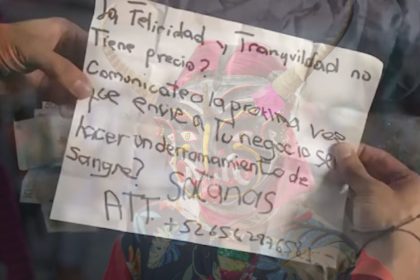 La Felicidad y Tranquilidad no
Tiene precio?
Comunicate a la proxima vez
que envie a Tu negocio sera
hacer un derramamiento de
Sangre?
Satanas
ATT. +52656